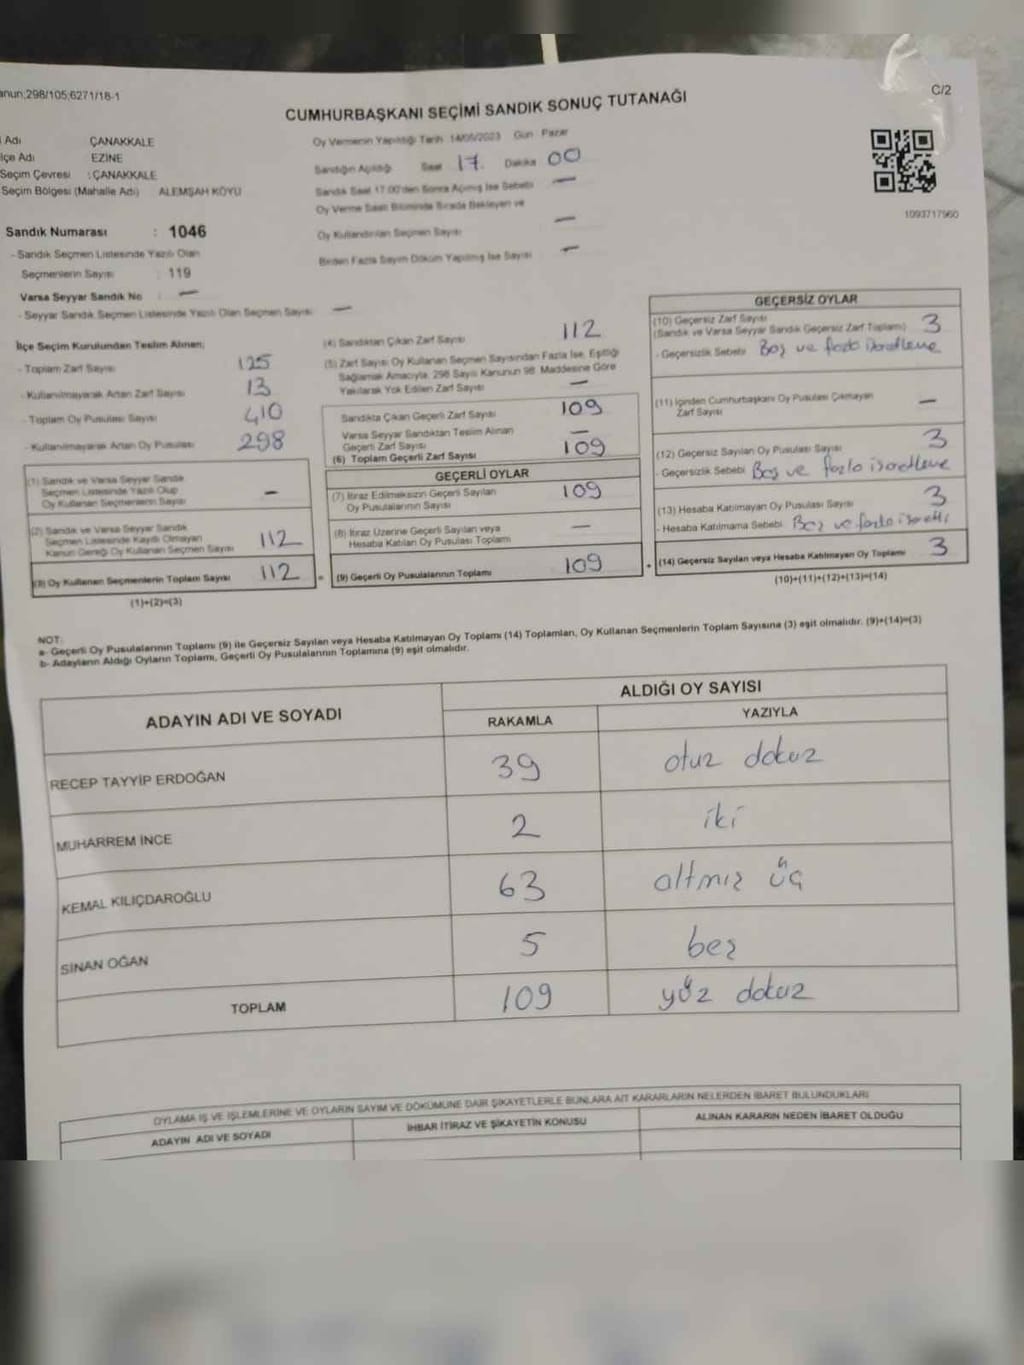 anun;298/105;6271/18-1
C/2
CUMHURBAŞKANI SEÇİMİ SANDIK SONUÇ TUTANAĞI
Adı ÇANAKKALE
lçe Adı EZİNE
Seçim Çevresi : ÇANAKKALE
Seçim Bölgesi (Mahalle Adı) ALEMŞAH KÖYÜ
Sandık Numarası : 1046
- Sandık Seçmen Listesinde Yazılı Olan
Seçmenlerin Sayısı 119
Varsa Seyyar Sandık No : —
- Seyyar Sandık Seçmen Listesinde Yazılı Olan Seçmen Sayısı —
Oy Vermenin Yapıldığı Tarih 14/05/2023 Gün Pazar
Sandığın Açıldığı Saat 17. Dakika 00
Sandık Saat 17.00'den Sonra Açılmış İse Sebebi —
Oy Verme Saati Bitiminde Sırada Bekleyen ve
Oy Kullandırılan Seçmen Sayısı —
Birden Fazla Sayım Döküm Yapılmış İse Sayısı —
1093717960
İlçe Seçim Kurulundan Teslim Alınan;
- Toplam Zarf Sayısı 125
- Kullanılmayarak Artan Zarf Sayısı 13
- Toplam Oy Pusulası Sayısı 410
- Kullanılmayarak Artan Oy Pusulası 298
(1) Sandık ve Varsa Seyyar Sandık
Seçmen Listesinde Yazılı Olup
Oy Kullanan Seçmenlerin Sayısı —
(2) Sandık ve Varsa Seyyar Sandık
Seçmen Listesinde Kayıtlı Olmayan
Kanun Gereği Oy Kullanan Seçmen Sayısı 112
(3) Oy Kullanan Seçmenlerin Toplam Sayısı 112
(1)+(2)=(3)
(4) Sandıktan Çıkan Zarf Sayısı 112
(5) Zarf Sayısı Oy Kullanan Seçmen Sayısından Fazla İse, Eşitliği
Sağlamak Amacıyla, 298 Sayılı Kanunun 98. Maddesine Göre
Yakılarak Yok Edilen Zarf Sayısı —
Sandıkta Çıkan Geçerli Zarf Sayısı 109
Varsa Seyyar Sandıktan Teslim Alınan
Geçerli Zarf Sayısı —
(6) Toplam Geçerli Zarf Sayısı 109
GEÇERLİ OYLAR
(7) İtiraz Edilmeksizin Geçerli Sayılan
Oy Pusulalarının Sayısı 109
(8) İtiraz Üzerine Geçerli Sayılan veya
Hesaba Katılan Oy Pusulası Toplamı —
= (9) Geçerli Oy Pusulalarının Toplamı 109
GEÇERSİZ OYLAR
(10) Geçersiz Zarf Sayısı
(Sandık ve Varsa Seyyar Sandık Geçersiz Zarf Toplamı) 3
- Geçersizlik Sebebi Boş ve fazla işaretleme
(11) İçinden Cumhurbaşkanı Oy Pusulası Çıkmayan
Zarf Sayısı —
(12) Geçersiz Sayılan Oy Pusulası Sayısı 3
- Geçersizlik Sebebi Boş ve fazla işaretleme
(13) Hesaba Katılmayan Oy Pusulası Sayısı 3
- Hesaba Katılmama Sebebi Boş ve fazla
+ (14) Geçersiz Sayılan veya Hesaba Katılmayan Oy Toplamı 3
(10)+(11)+(12)+(13)=(14)
NOT:
a- Geçerli Oy Pusulalarının Toplamı (9) ile Geçersiz Sayılan veya Hesaba Katılmayan Oy Toplamı (14) Toplamları, Oy Kullanan Seçmenlerin Toplam Sayısına (3) eşit olmalıdır. (9)+(14)=(3)
b- Adayların Aldığı Oyların Toplamı, Geçerli Oy Pusulalarının Toplamına (9) eşit olmalıdır.
ADAYIN ADI VE SOYADI
ALDIĞI OY SAYISI
RAKAMLA YAZIYLA
RECEP TAYYİP ERDOĞAN 39 otuz dokuz
MUHARREM İNCE 2 iki
KEMAL KILIÇDAROĞLU 63 altmış üç
SİNAN OĞAN 5 beş
TOPLAM 109 yüz dokuz
OYLAMA İŞ VE İŞLEMLERİNE VE OYLARIN SAYIM VE DÖKÜMÜNE DAİR ŞİKAYETLERLE BUNLARA AİT KARARLARIN NELERDEN İBARET BULUNDUKLARI
ADAYIN ADI VE SOYADI İHBAR İTİRAZ VE ŞİKAYETİN KONUSU ALINAN KARARIN NEDEN İBARET OLDUĞU